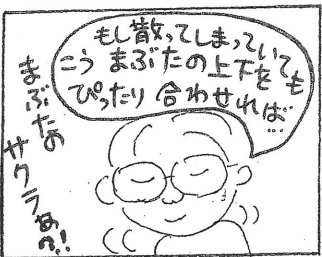 もし散ってしまっていても
こう まぶたの上下を
ぴったり 合わせれば…
まぶたの
サクラあ?!